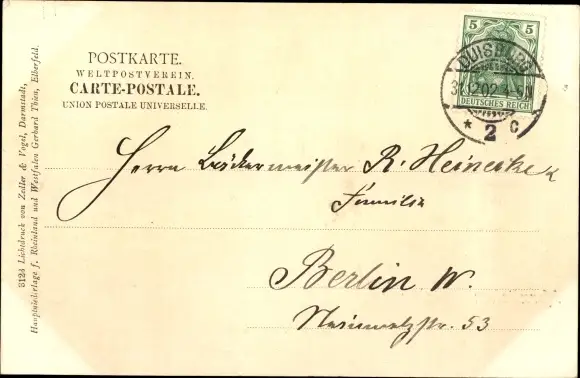 POSTKARTE.
WELTPOSTVEREIN.
CARTE-POSTALE.
UNION POSTALE UNIVERSELLE.
5 5
DEUTSCHES REICH
DUISBURG
12.02 4-5N
* 2 C
Herrn Bäckermeister R. Heinecke &
Familie
Berlin W.
53
3124 Lichtdruck von Zedler & Vogel, Darmstadt,
Hauptniederlage f. Rheinland und Westfalen Gerhard Thien, Elberfeld.